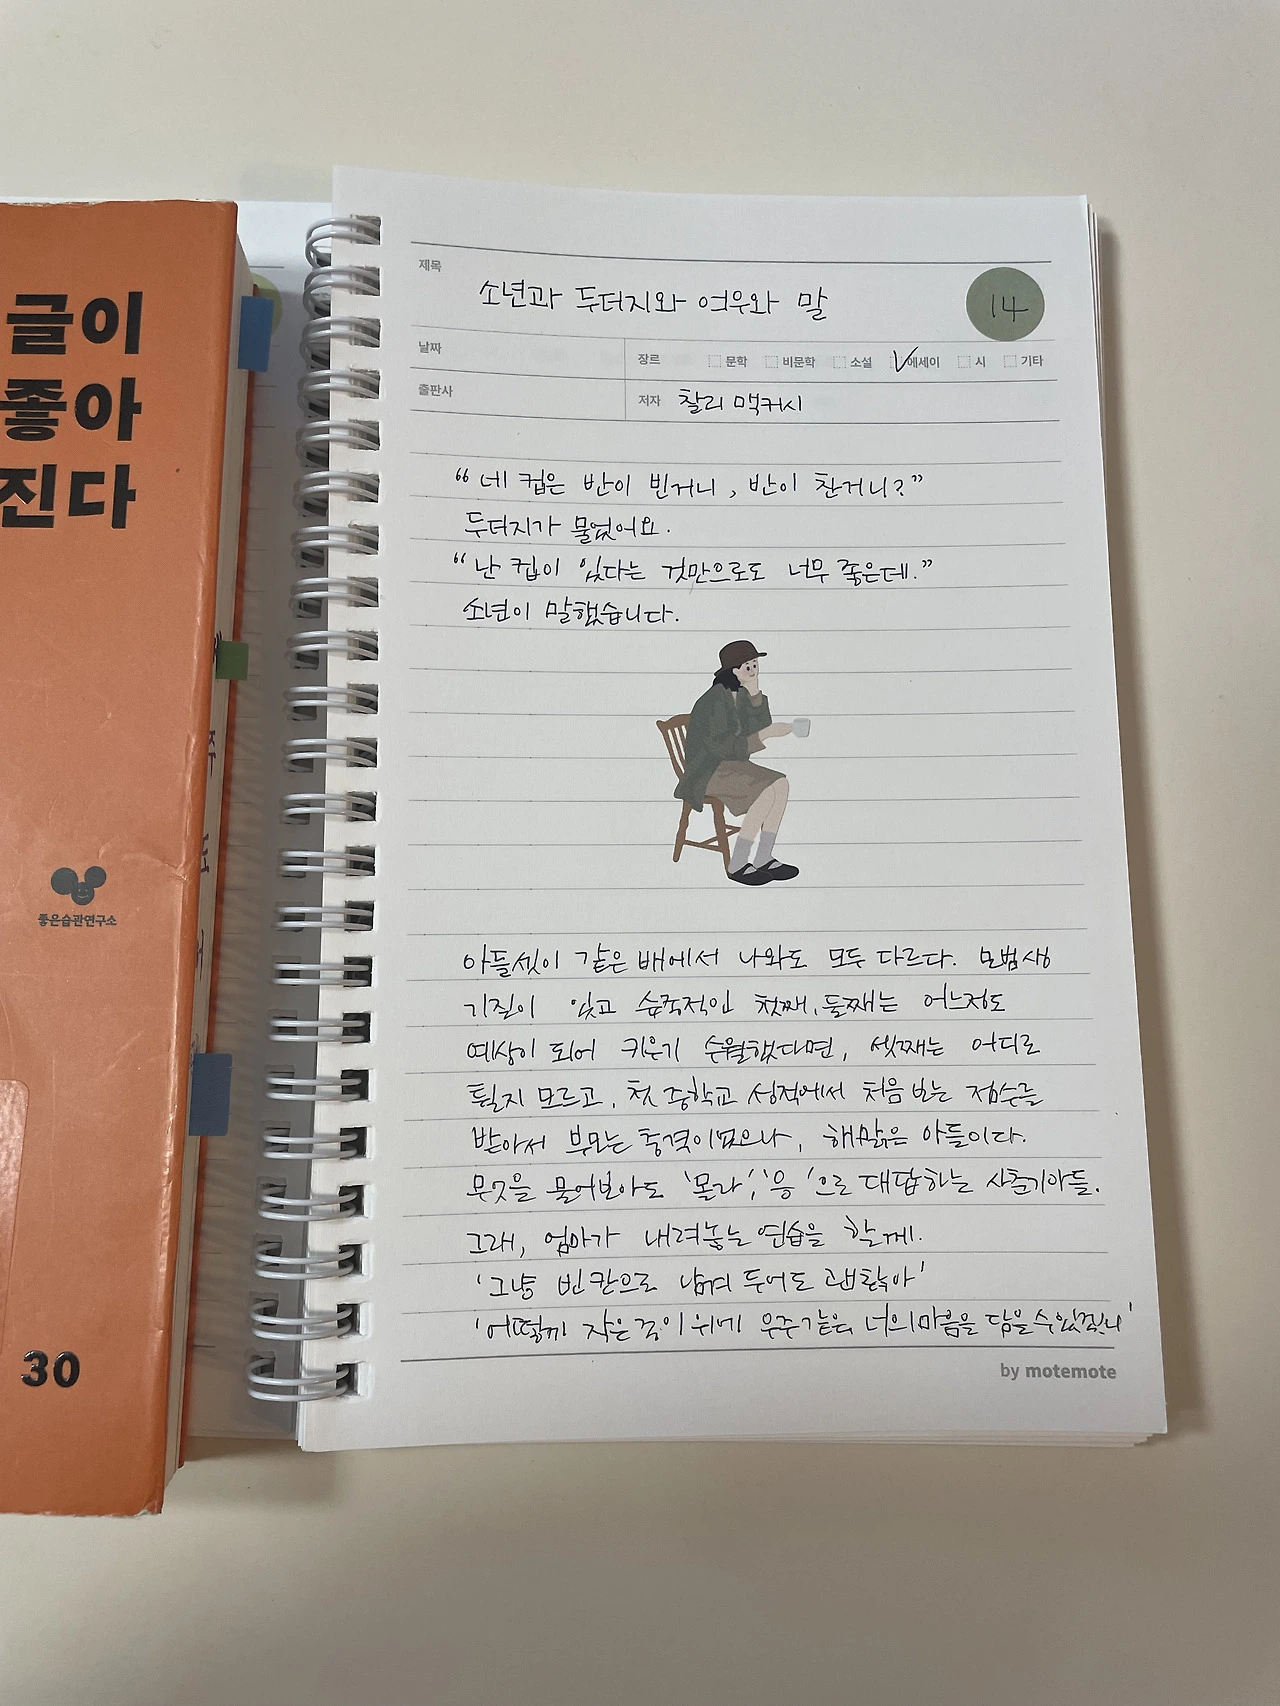 글이
좋아
진다
좋은습관연구소
30
제목
소년과 두더지와 여우와 말
14
날짜
장르 문학 비문학 소설 에세이 시 기타
출판사
저자 찰리 맥커시
“네 컵은 반이 빈거니, 반이 찬거니?”
두더지가 물었어요.
“난 컵이 있다는 것만으로도 너무 좋은데.”
소년이 말했습니다.
아들셋이 같은 배에서 나와도 모두 다르다. 모범생
기질이 있고 습적인 첫째, 둘째는 어느정도
예상이 되어 키우기 수월했다면, 셋째는 어디로
튈지 모르고, 첫 중학교 성적에서 처음 보는 점수를
받아서 부모는 충격이었으나, 해맑은 아들이다.
무엇을 물어보아도 '몰라','응'으로 대답하는 사춘기아들.
그래, 엄마가 내려놓는 연습을 할게.
'그냥 빈칸으로 남겨 두어도 괜찮아'
'어떻게 작은 종이 위에 우주같은 너의 마음을 담을 수 있겠니'
by motemote